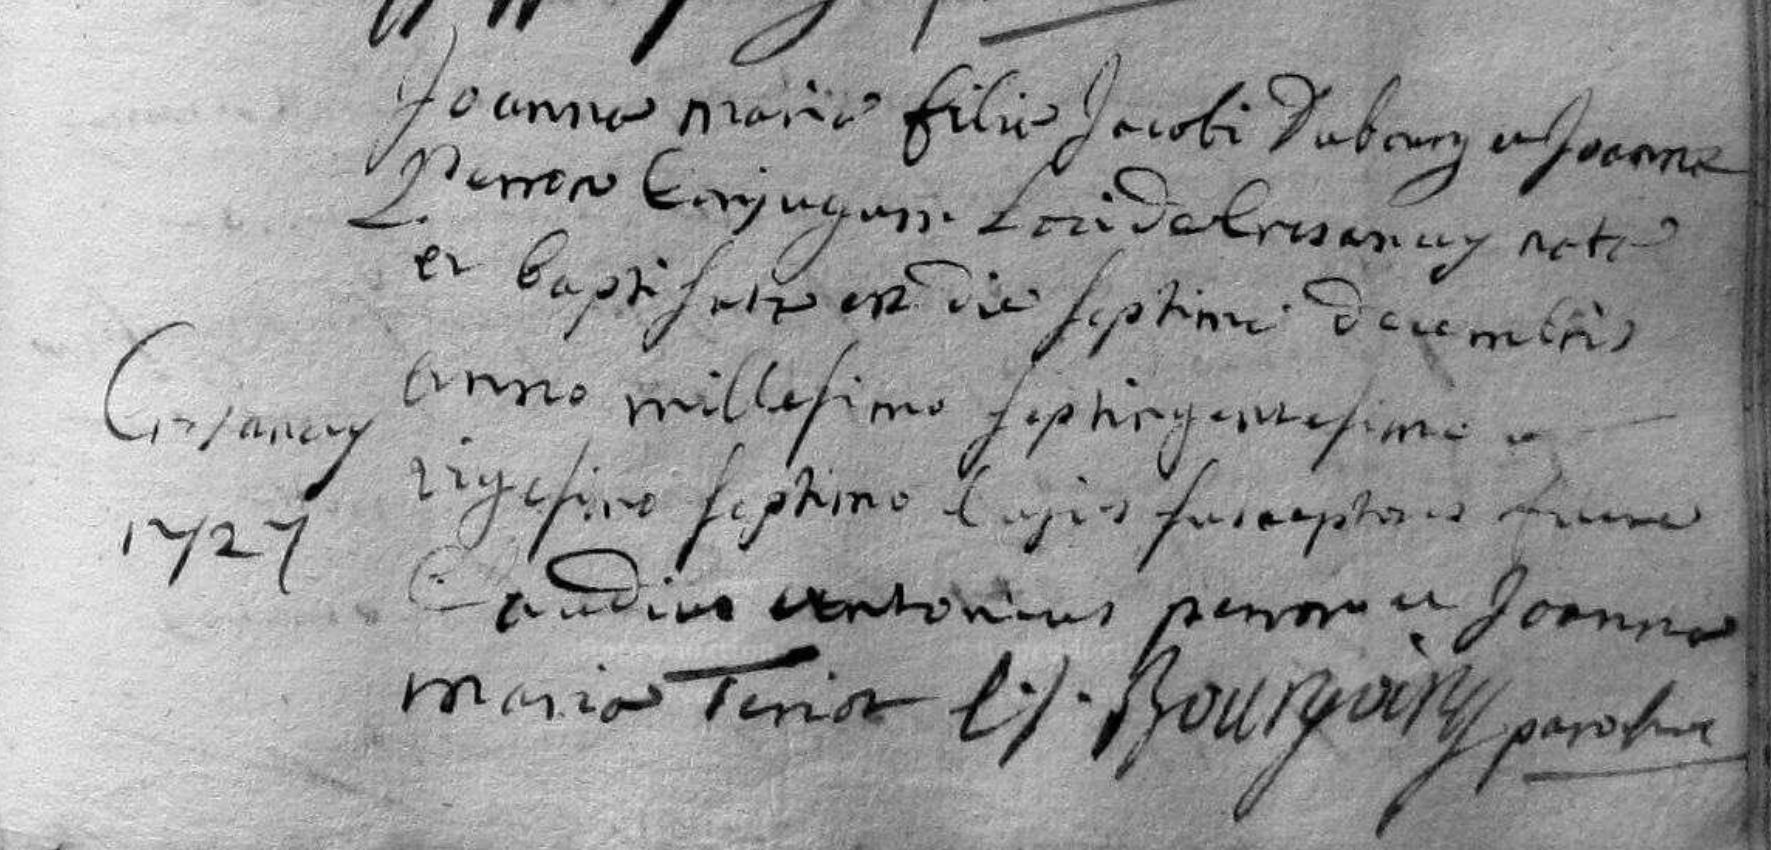 Joanna maria filia Jacobi Dubourg et Joannæ
Perron Conjugum Loci de Cresancey nata
et baptisata est die septima decembris
anno millesimo septingentesimo
Cresancey
vigesimo septimo Cujus susceptores fuere
1727
Claudius antonius perron et Joanna
maria Teriot C. J. Bourgoing parochus